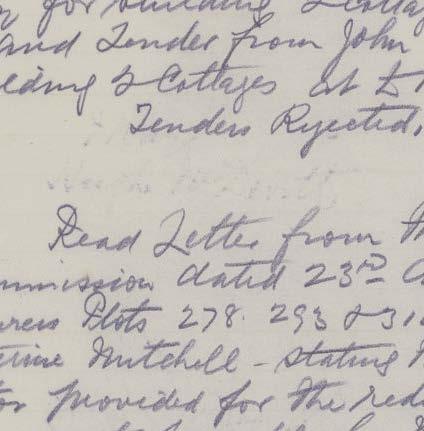 for building Cottag
and Tender from John
lding 2 Cottages at £
Tenders Rejected.
Read Letter from
mmission dated 23rd
urers Plots 278. 293 & 31
erine Mitchell - stating
tor provided for the red